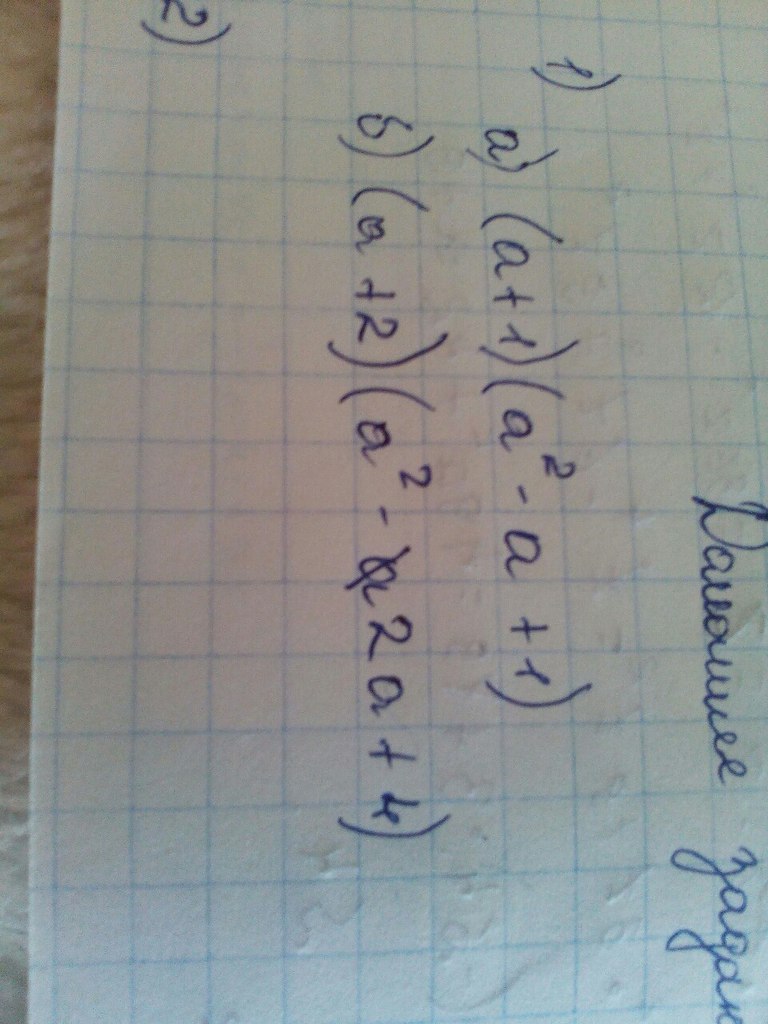 Домашнее задан
1)
а) (a+1)(a² - a + 1)
б) (a + 2)(a² - 2a + 4)
2)